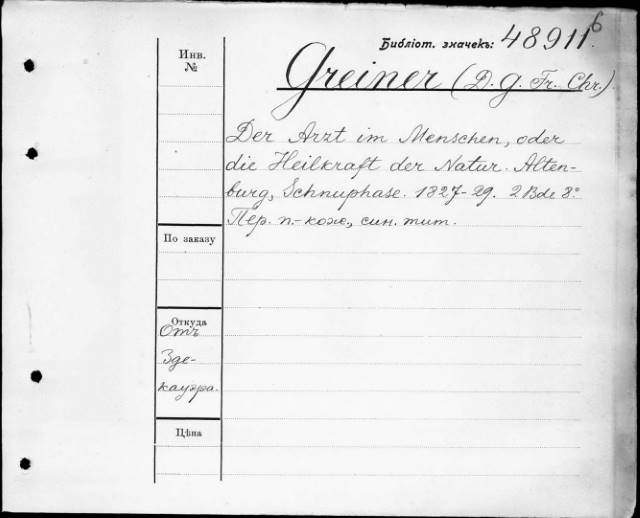 Библіот. значекъ: 48911б.
Инв.
№
Greiner (D. G. Fr. Chr.)
Der Arzt im Menschen, oder
die Heilkraft der Natur. Alten-
burg, Schnuphase. 1827-29. 2 Bde 8º
Пер. п.-кож., син. тит.
По заказу
Откуда
Отъ
Зде-
кауэра.
Цѣна